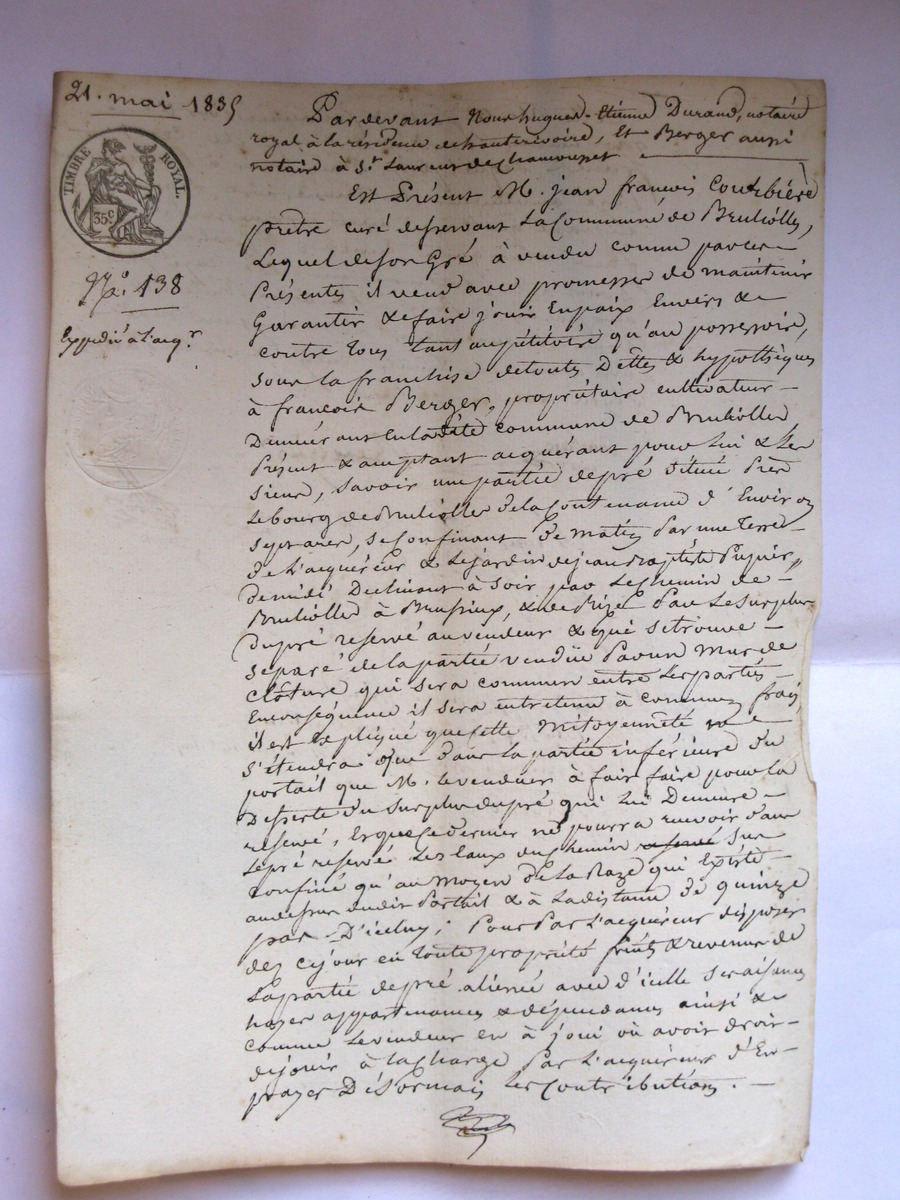 21. mai 1835
TIMBRE ROYAL.
35c
No. 138
Expedié à l'acqr.
Pardevant Nous hugues-Etienne Durand, notaire
royal à la résidence de hauterivoire, Et Berger aussi
notaire à St. Laurent de Chamousset
Est Présent M. jean francois Courbière
prêtre curé desservant La Commune de Brullolles,
Lequel de son Gré à vendu comme par ces
Présentes il vend avec promesses de maintenir
Garantir & faire jouir En paix Envers &
contre Tous tant au pétitoire qu'au possessoire,
sous la franchise de toutes Dettes & hypothèques
à francois Berger, propriétaire cultivateur
Demeurant En la dite commune de Brullolles
Présent & acceptant acquérant pour lui & Les
siens, savoir une partie de pré situé Près
Le bourg de Brullolles de la Contenance d'Environ
sept ares, se Confinant de matin Par une Terre
de L'acquéreur & Le jardin de jean Baptiste Dupuis,
de midi Declinant à soir par Le Chemin de
Brullolles à Brussieux, & de Bize Par Le surplus
du pré reservé au vendeur & qui se trouve
separé de la partie vendüe Par un Mur de
Clôture qui sera commun entre Les parties
En conséquence il sera entretenu à communs frais
il est Expliqué que cette mitoyenneté ne
s'étendra que dans la partie inférieure du
portail que M. Le vendeur à fait faire pour la
Desserte du surplus du pré qui Lui Demeure
reservé, Et que Ce dernier ne pourra recevoir dans
Le pré reservé Les Eaux du chemin sus
confiné qu'au moyen de la Raze qui Existe
au dessus du dit Portail & à La distance de quinze
pas D'icelui; Pour Par L'acquéreur disposer
dez ce jour en toute propriété fruits & revenus de
La partie de pré aliénée avec d'icelle ses aisances
appartenances & dépendances ainsi &
comme Le vendeur en à joui où avoir droit
de jouir à la Charge Par L'acquéreur d'En
payer Désormais Les Contributions.